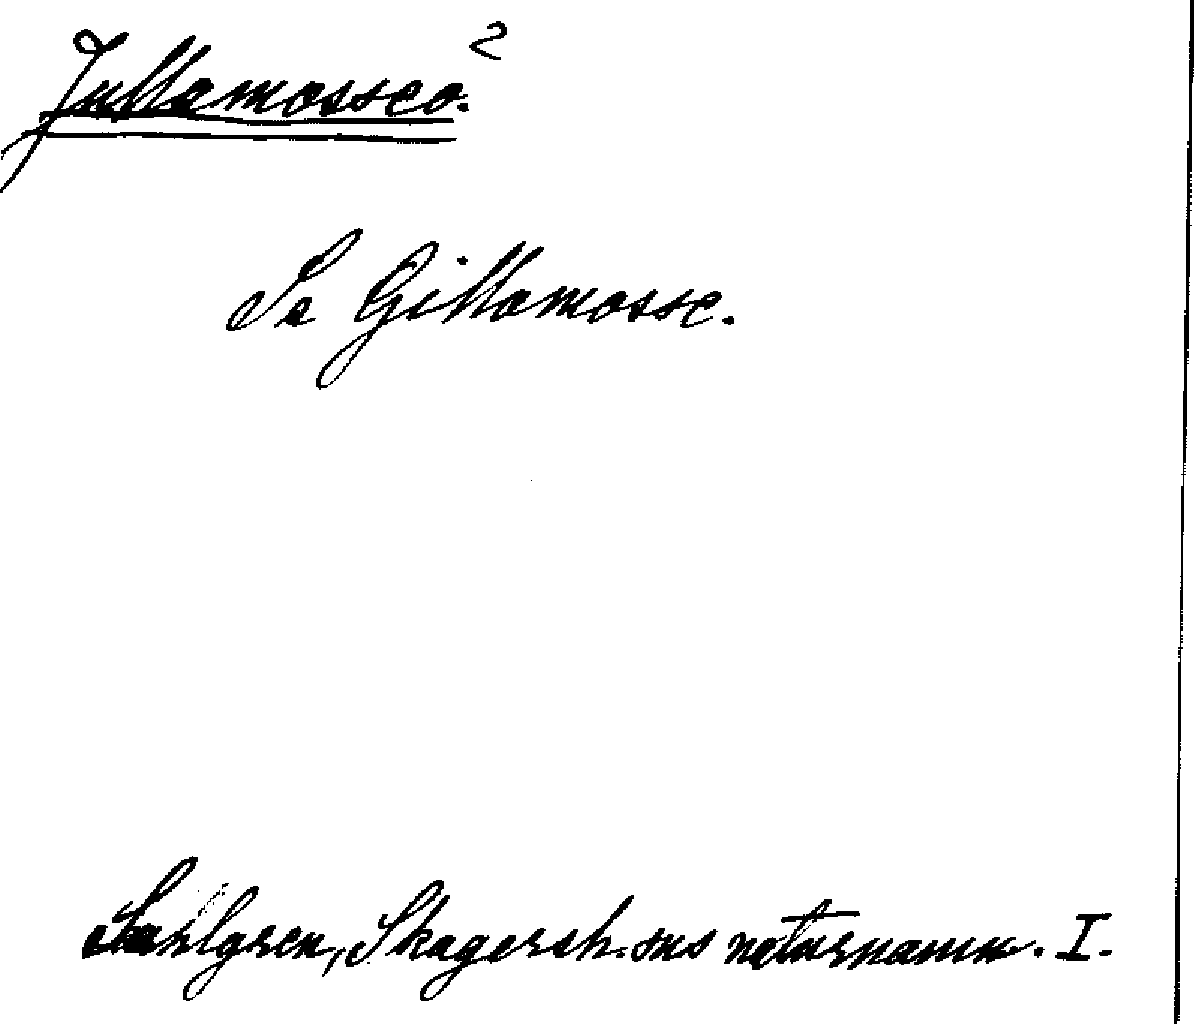 Jullamossen. 2
Se Gillamosse.
Sahlgren, Skagersh. sns naturnamn. I.